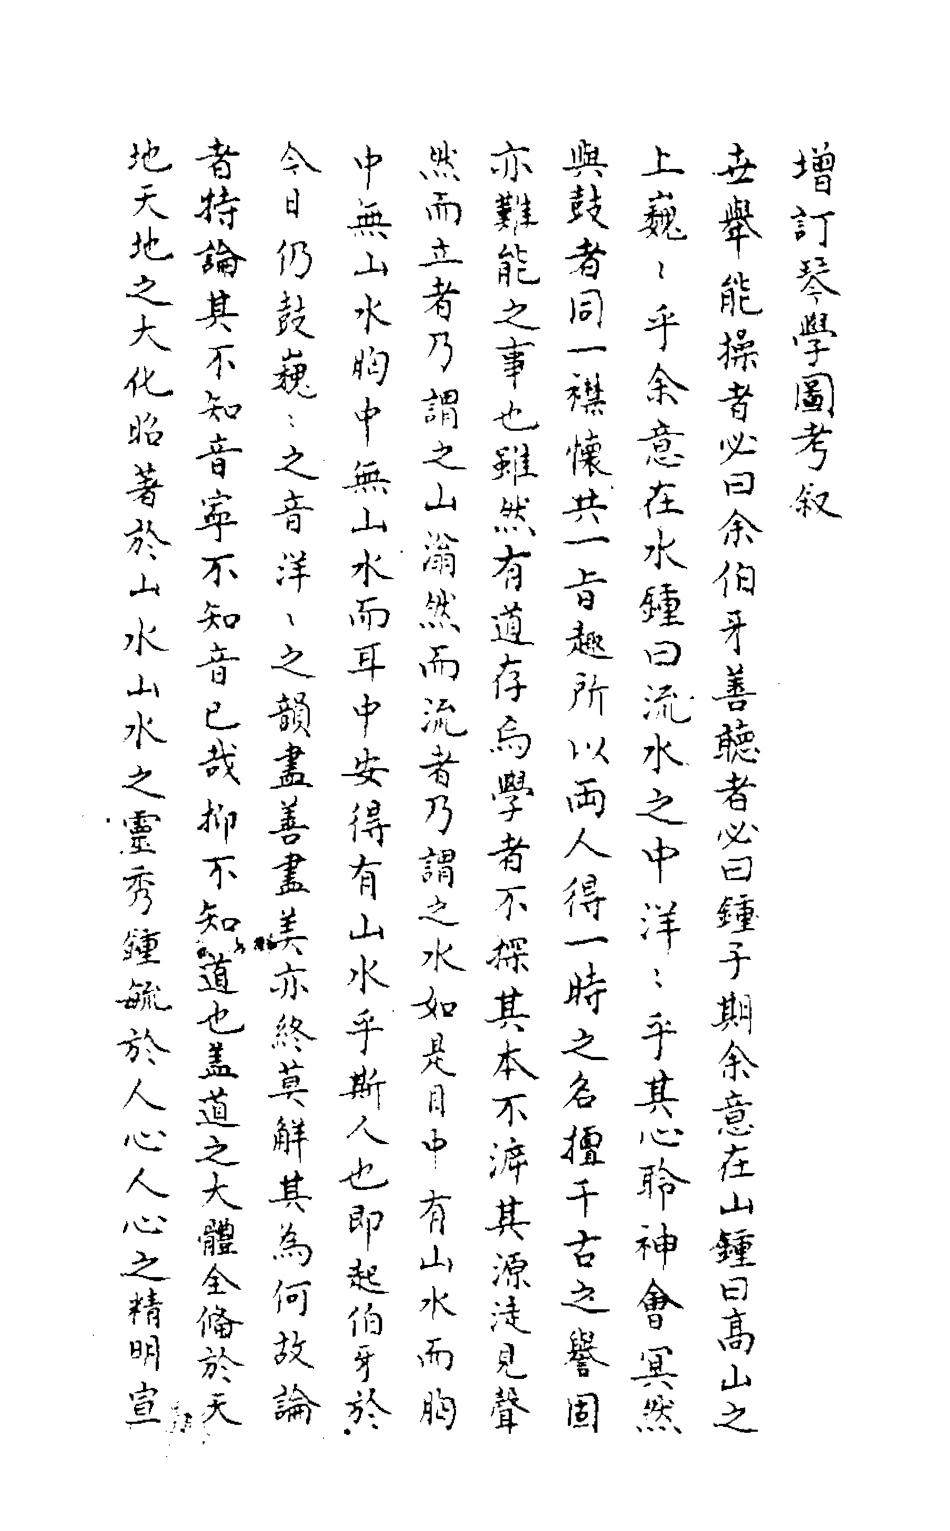 增訂琴學圖考叙
世舉能操者必曰余伯牙善聽者必曰鍾子期余意在山鍾曰高山之
上巍〻乎余意在水鍾曰流水之中洋〻乎其心聆神會冥然
與鼓者同一襟懷共一旨趣所以兩人得一時之名擅千古之譽固
亦難能之事也雖然有道存焉學者不探其本不滓其源徒見聳
然而立者乃謂之山滃然而流者乃謂之水如是目中有山水而胸
中無山水胸中無山水而耳中安得有山水乎斯人也即起伯牙於
今日仍鼓巍〻之音洋〻之韻盡善盡美亦終莫解其為何故論
者特論其不知音寧不知音已哉抑不知道也蓋道之大體全俻於天
地天地之大化昭著於山水山水之靈秀鍾毓於人心人心之精明宣